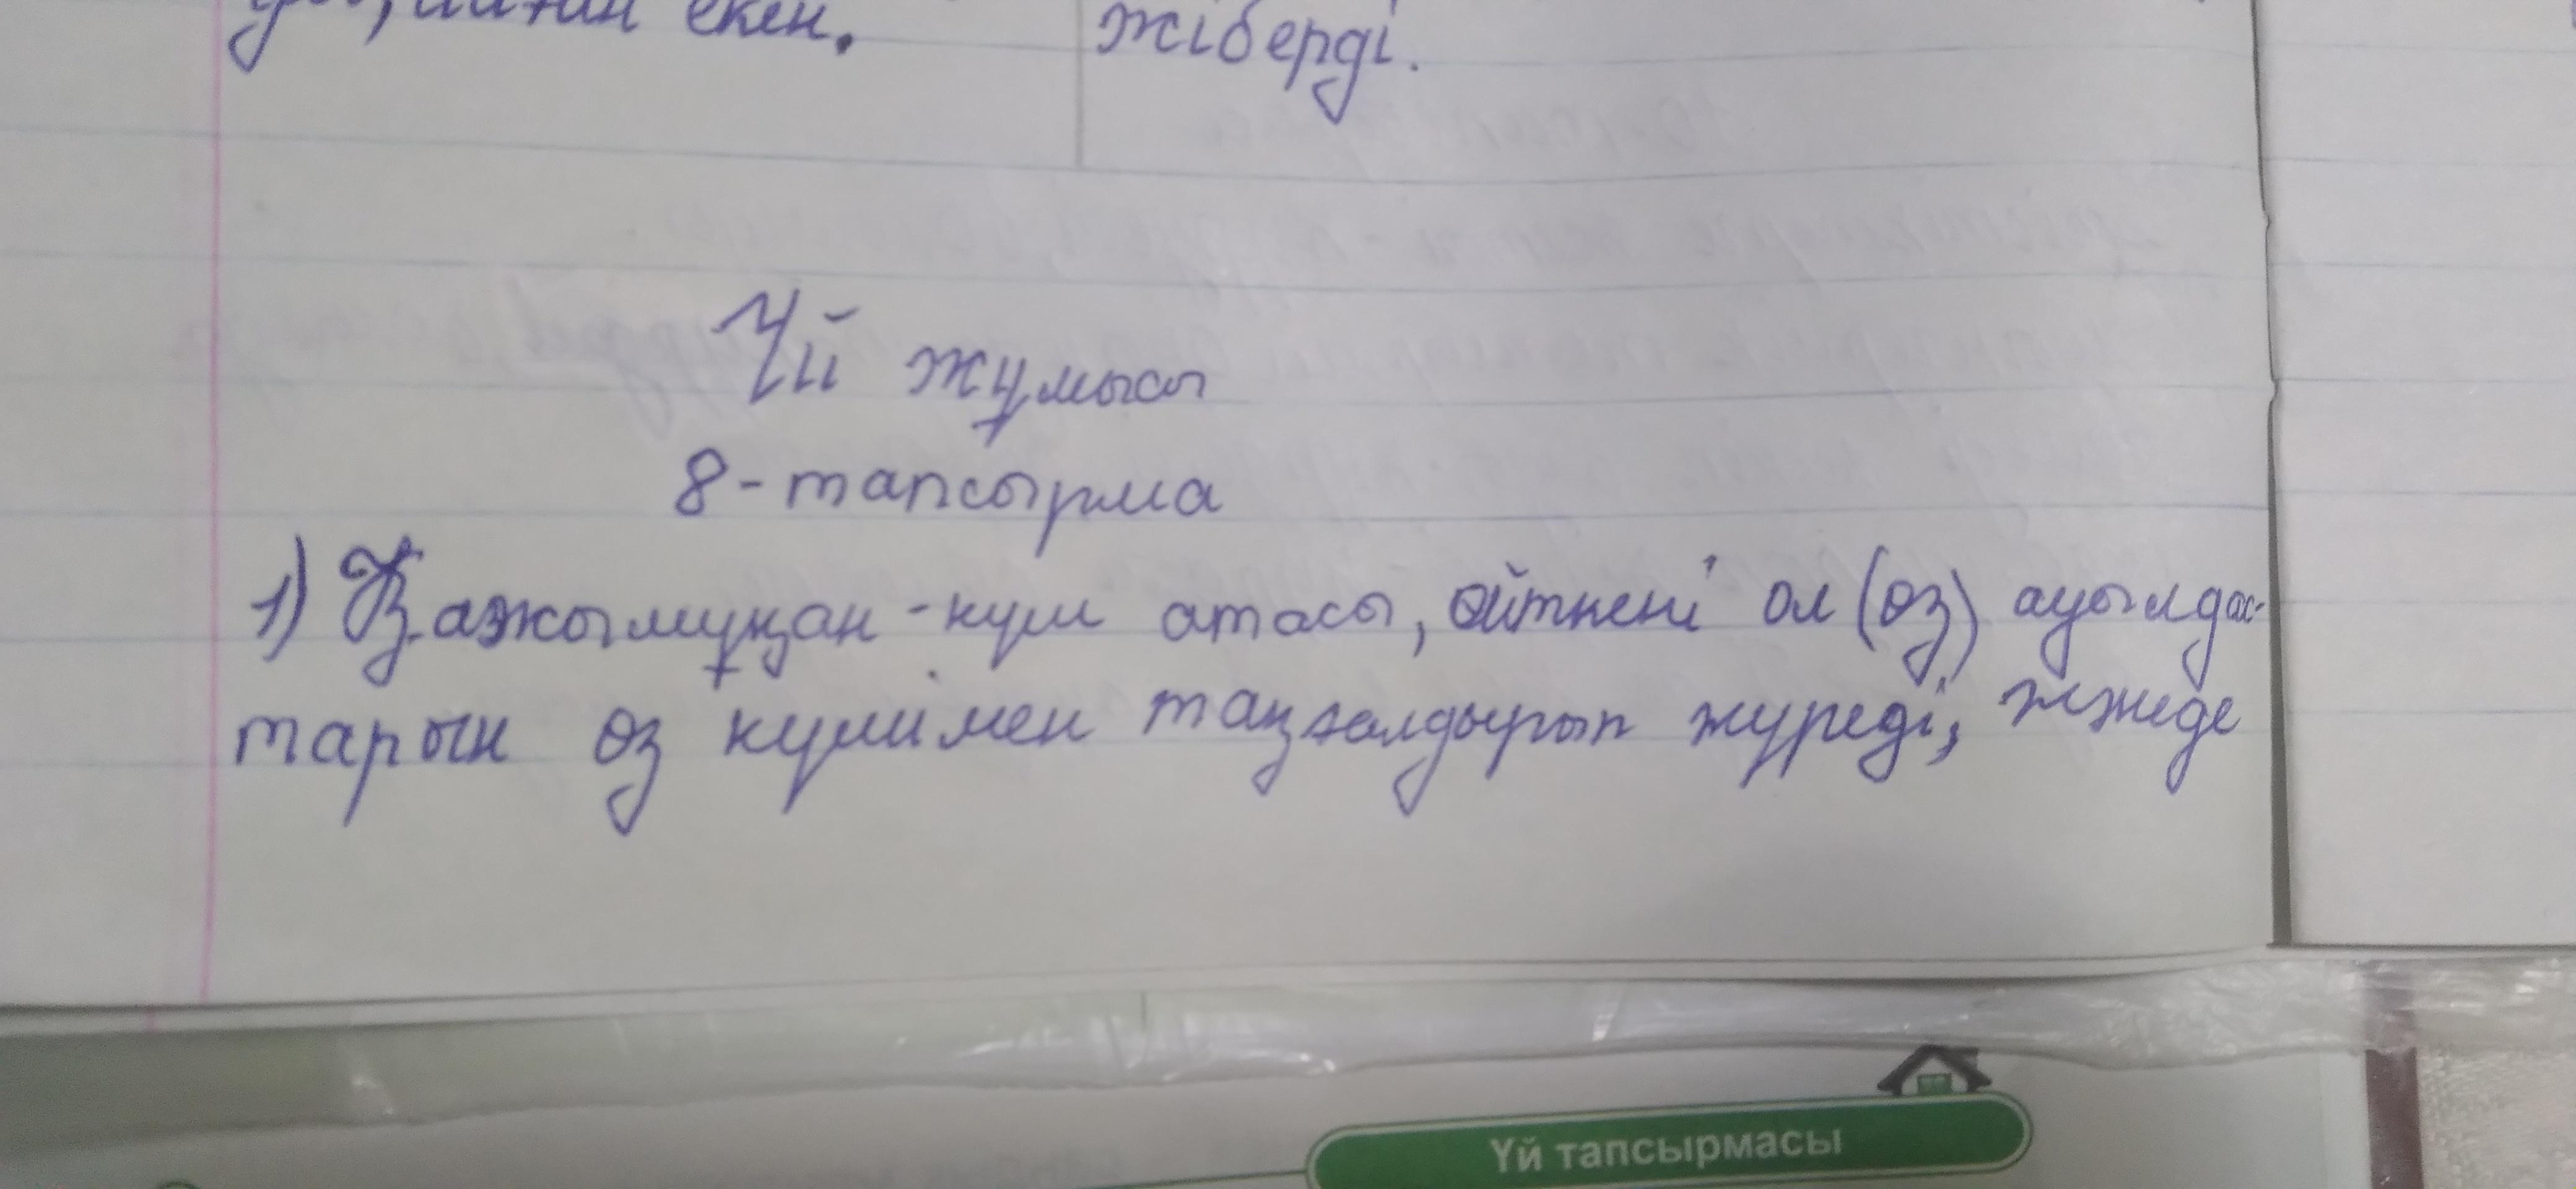 екен. жіберді.
Үй жұмысы
8-тапсырма
1) Қажымұқан - күш атасы, өйткені ол (өз) ауылдас-
тарын өз күшімен таңғалдырып жүреді,
Үй тапсырмасы